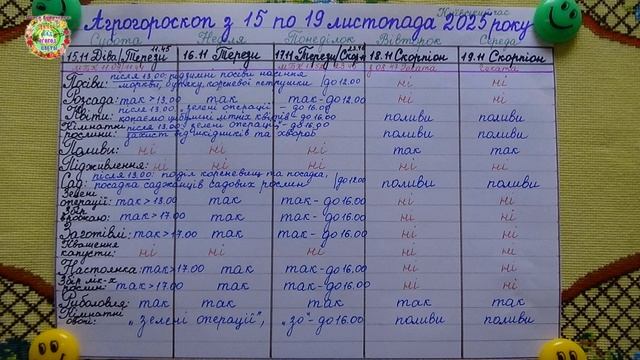 Київський час
Агрогороскоп з 15 по 19 листопада 2025 року
Субота Неділя Понеділок Вівторок Середа
11.45
15.11 Діва/Терези 16.11 Терези 17.11 Терези/Скор 18.11 Скорпіон 19.11 Скорпіон
Посіви: після 13.00: підзимні посіви насіння ні ні
моркви, буряку, кореневої петрушки /до 12.00
Посадка: так > 13.00 так так - до 12.00 ні ні
після 13.00: зелені операції - до 16.00
Квіти: копаємо цибулини літніх квітів - до 16.00 поливи поливи
Кімнатні після 13.00: зелені операції - до 16.00
рослини: захист від шкідників та хвороб поливи поливи
Поливи: ні ні ні так так
Підживлення: ні ні ні ні ні
після 13.00: поділ кореневищ та посадка,
Сад: посадка саджанців садових рослин /до 12.00 поливи поливи
Зелені
операції: так > 13.00 так так - до 16.00 ні ні
Збір
врожаю: так > 17.00 так так - до 16.00 ні ні
Заготівлі: так > 17.00 так так - до 16.00 ні ні
Квашення
капусти: ні ні ні ні ні
Настоянка: так > 17.00 так так - до 16.00 ні ні
Збір лік-х
рослин: так > 17.00 так так - до 16.00 ні ні
Риболовля: так так так так так
Кімнатні
овочі: "зелені операції", "зо" - до 16.00 поливи поливи